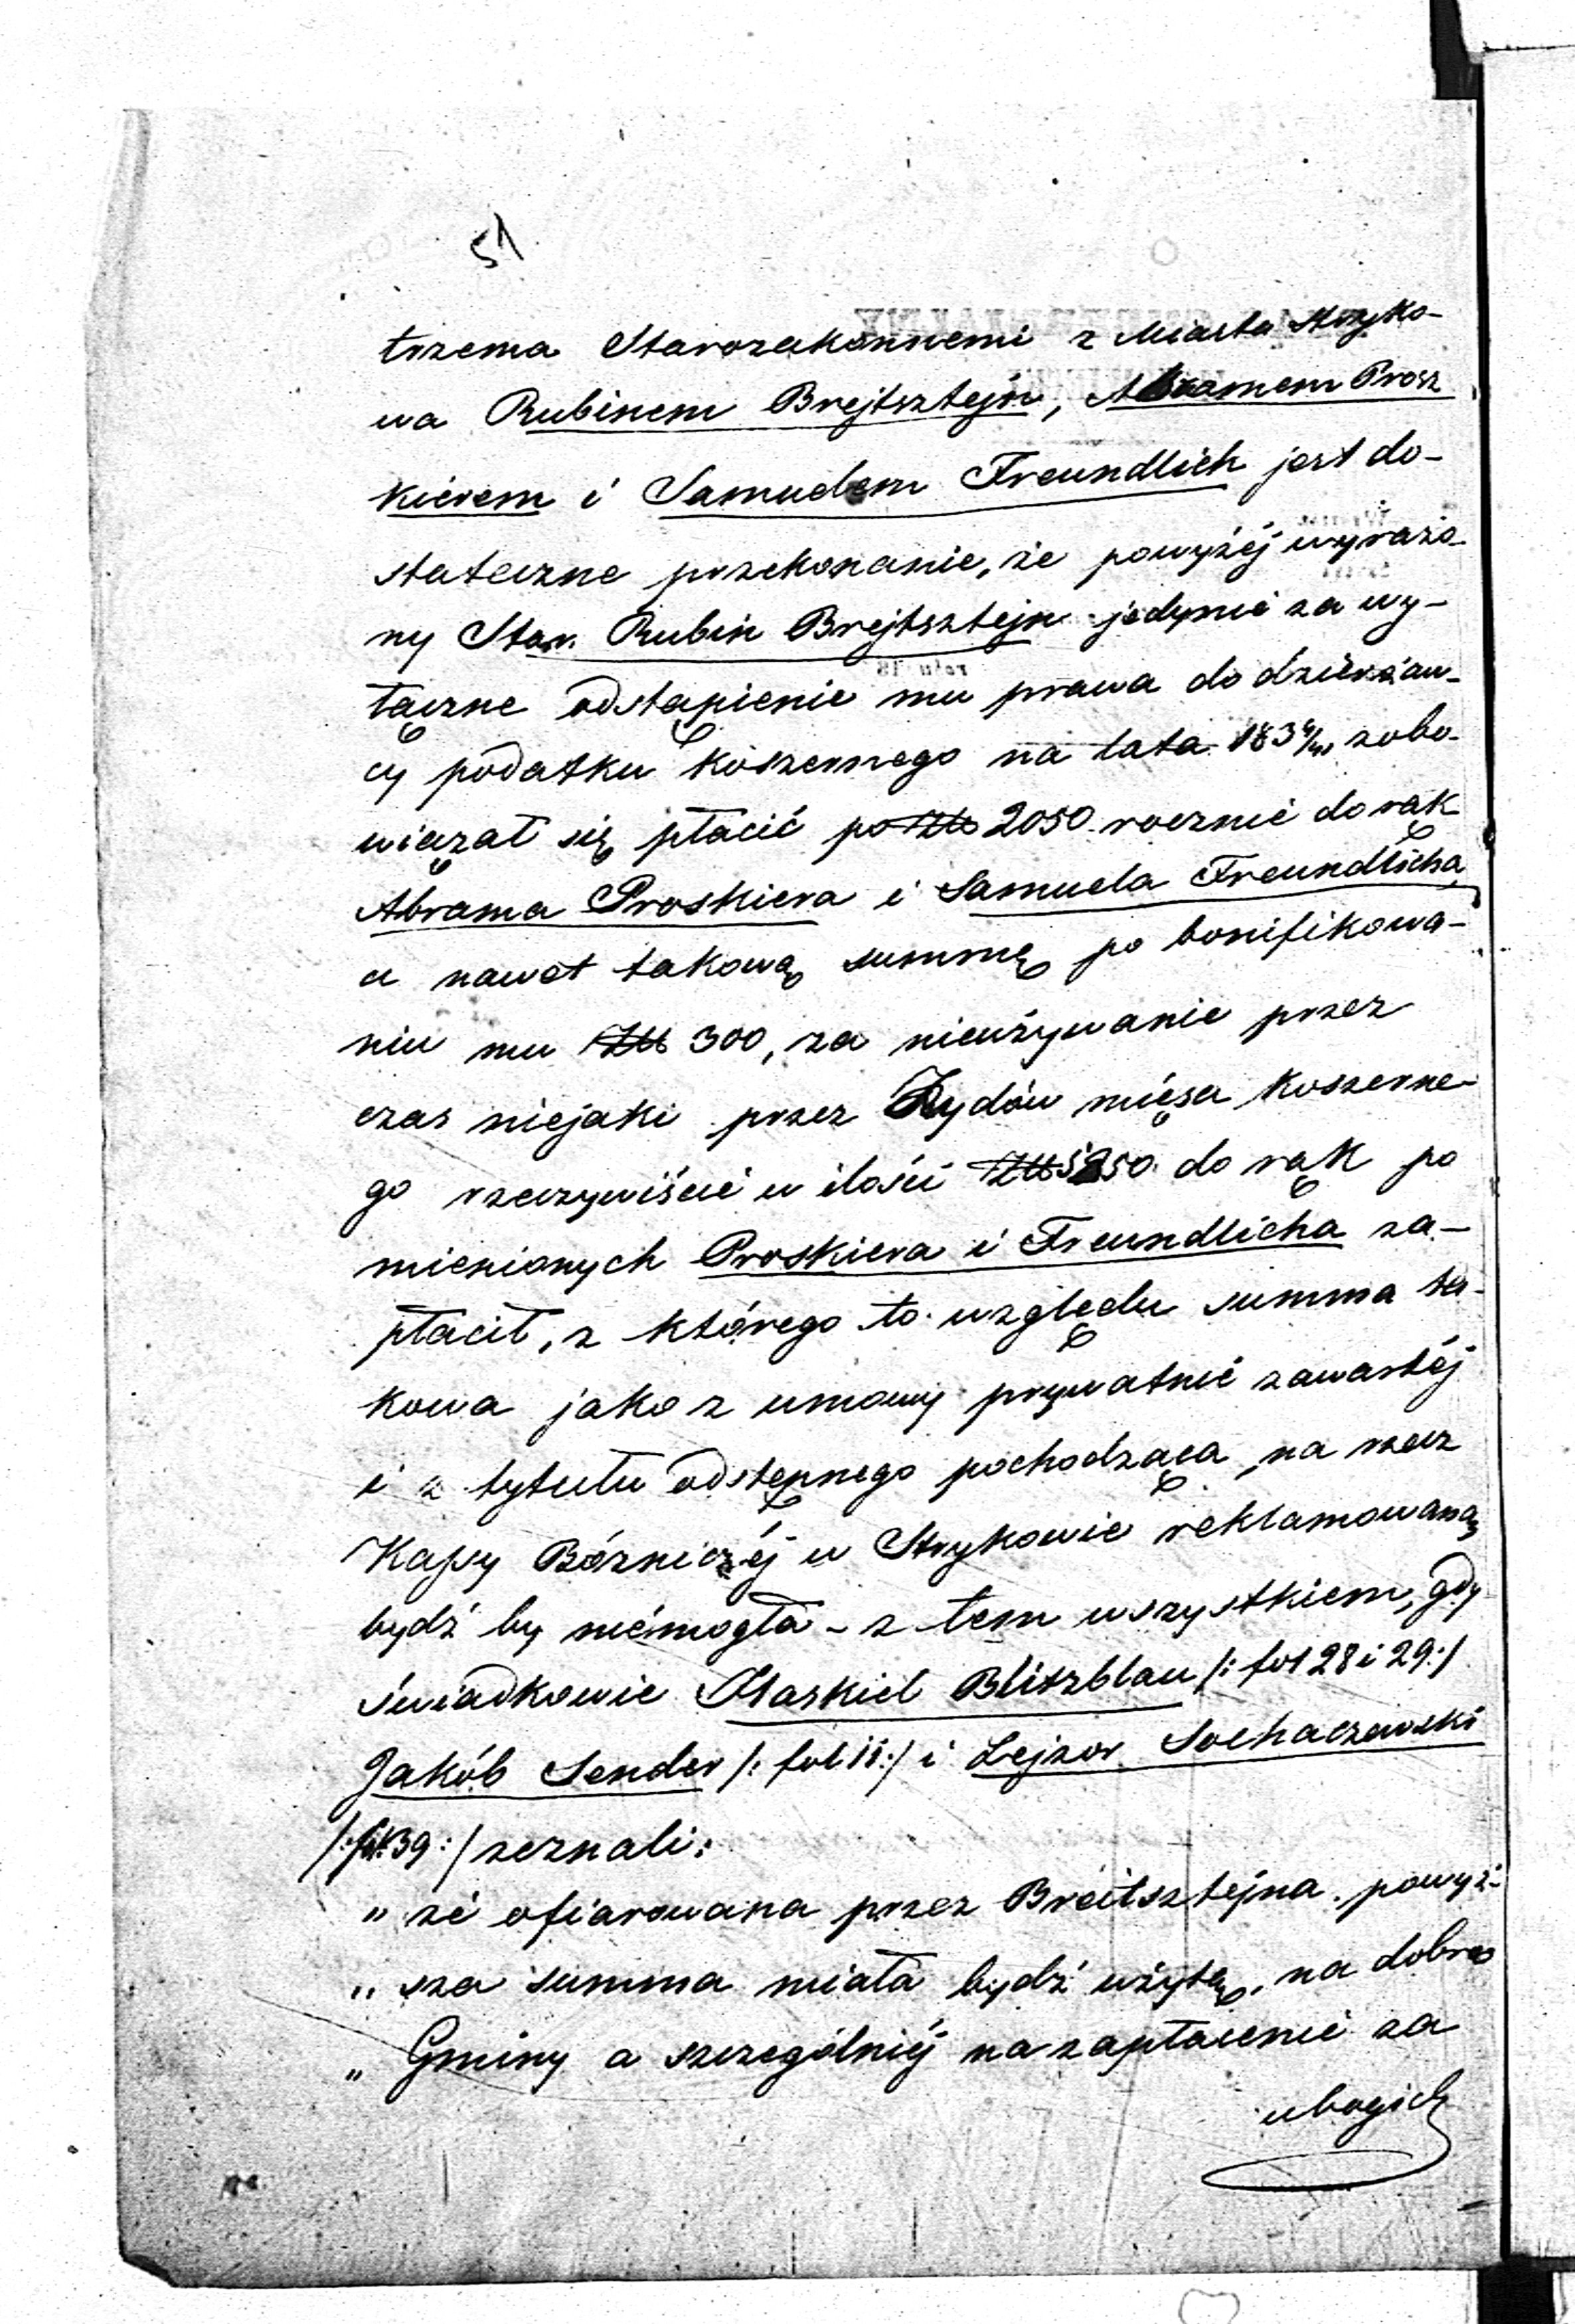 51
trzema Starozakonnemi z Miasta Stryko-
wa Rubinem Brejtsztejn, Abramem Prosz
kierem i Samuelem Freundlich jest do-
stateczne przekonanie, że powyżéj wyrażo-
ny Star. Rubin Brejtsztejn jedynie za wy-
łączne odstąpienie mu prawa do dzierżaw-
cy podatku koszernego na lata zobo-
wiązał się płacić po Złł 2050 rocznie do rąk
Abrama Proskiera i Samuela Freundlicha,
a nawet takową summę po bonifikowa-
niu mu Złł 300, za nieużywanie przez
czas niejaki przez Żydów mięsa koszerne-
go rzeczywiście w ilości Złł do rąk po
mienionych Proskiera i Freundlicha za-
płacił, z którego to względu summa ta-
kowa jako z umowy prywatnie zawartéj
i z tytułu odstępnego pochodząca, na rzecz
Kassy Bóźniczéj w Strykowie reklamowaną
bydź by niemogła - z tem wszystkiem, gdy
świadkowie Haskiel Blitzblau /: fol 28 i 29:/
Jakób Sender /: fol 11:/ i Lejzor Sochaczewski
/: fol. 39:/ zeznali:
" że ofiarowana przez Breitsztejna powyż-
" sza summa miała bydź użytą, na dobro
" Gminy a szczególniéj na zapłacenie za
ubogich